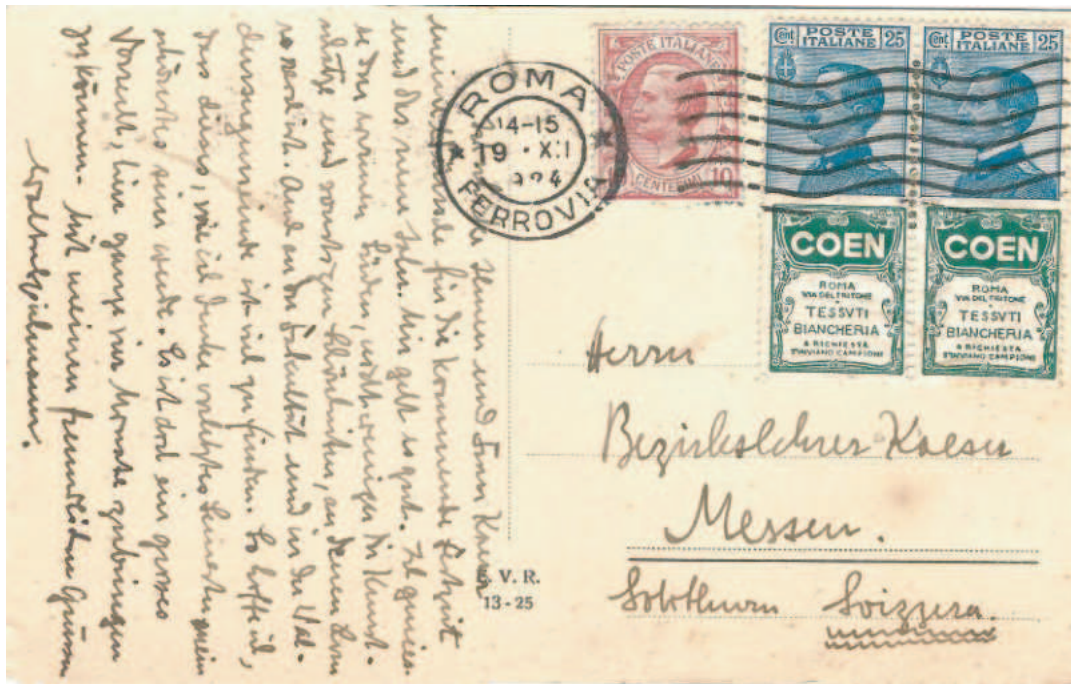 ROMA
14-15
19 · XII
924
FERROVIA
POSTE ITALIANE
10 CENTESIMI 10
Cent. POSTE 25
ITALIANE
Cent. POSTE 25
ITALIANE
COEN
ROMA
VIA DEL TRITONE
TESSVTI
BIANCHERIA
A RICHIESTA
S'INVIANO CAMPIONI
COEN
ROMA
VIA DEL TRITONE
TESSVTI
BIANCHERIA
A RICHIESTA
S'INVIANO CAMPIONI
Herrn
Bezirkslehrer Kaeser
Messen.
Solothurn Svizzera.
E. V. R.
13-25
Ihnen und Frau Kaeser
für die kommende Festzeit
und das neue Jahr. Mir geht es gut. Ich genies-
se den Süden, die Kunst-
schätze und sonstigen Schönheiten, an denen Rom
so reich ist. Auch an der Fakultät und in der Wal-
densergemeinde ist viel zu finden. So hoffe ich,
dass dieses, wie ich denke vorletztes Semester mein
schönstes sein werde. Es ist doch ein grosses
Vorrecht, hier ganze vier Monate zubringen
zu können. Mit meinen freundlichen Grüssen